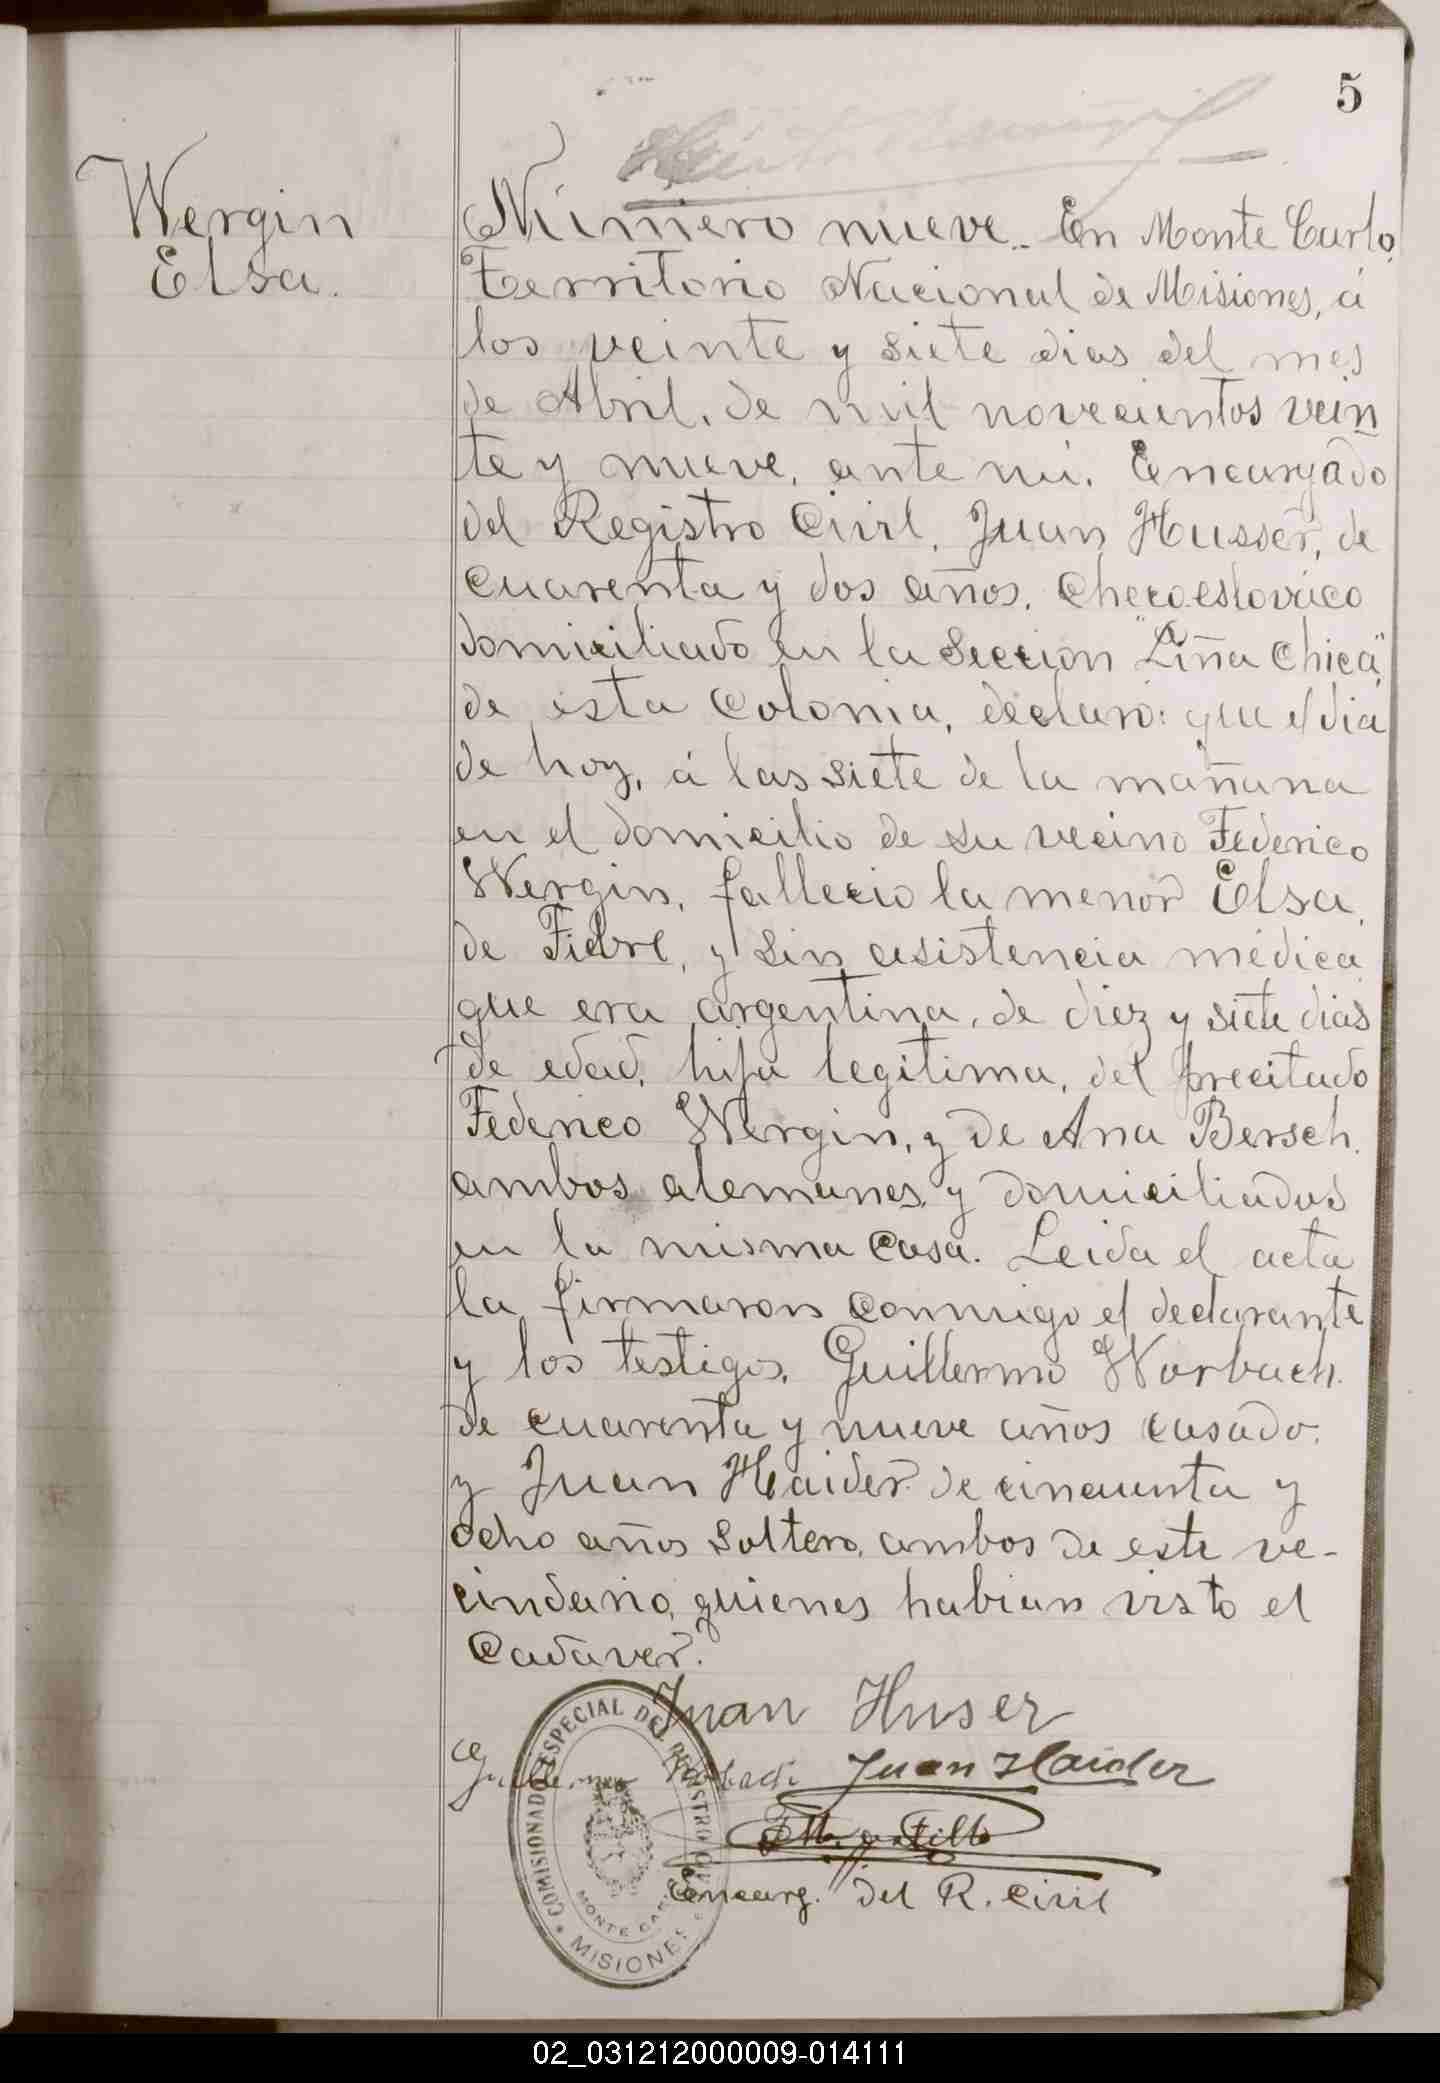 5
Wergin
Elsa.
Número nueve.. En Monte Carlo,
Territorio Nacional de Misiones, á
los veinte y siete dias del mes
de Abril, de mil novecientos vein
te y nueve, ante mi, Encargado
del Registro Civil, Juan Husser, de
cuarenta y dos años, checoeslovaco
domiciliado en la Seccion "Liña Chica"
de esta Colonia, declaró: que el dia
de hoy, á las siete de la mañana
en el domicilio de su vecino Federico
Wergin, fallecio la menor Elsa,
de Fiebre, y sin asistencia médica
que era argentina, de diez y siete dias
de edad, hija legitima, del precitado
Federico Wergin, y de Ana Bersch,
ambos alemanes, y domiciliados
en la misma casa. Leida el acta
la firmaron conmigo el declarante
y los testigos, Guillermo Warbach,
de cuarenta y nueve años casado,
y Juan Haider de cincuenta y
ocho años soltero, ambos de este ve-
cindario, quienes habian visto el
cadaver.
Juan Huser
Guillermo Juan Haider
Encarg. del R. Civil
COMISIONADO ESPECIAL DEL REGISTRO CIVIL
MONTE CARLO
MISIONES
02_031212000009-014111